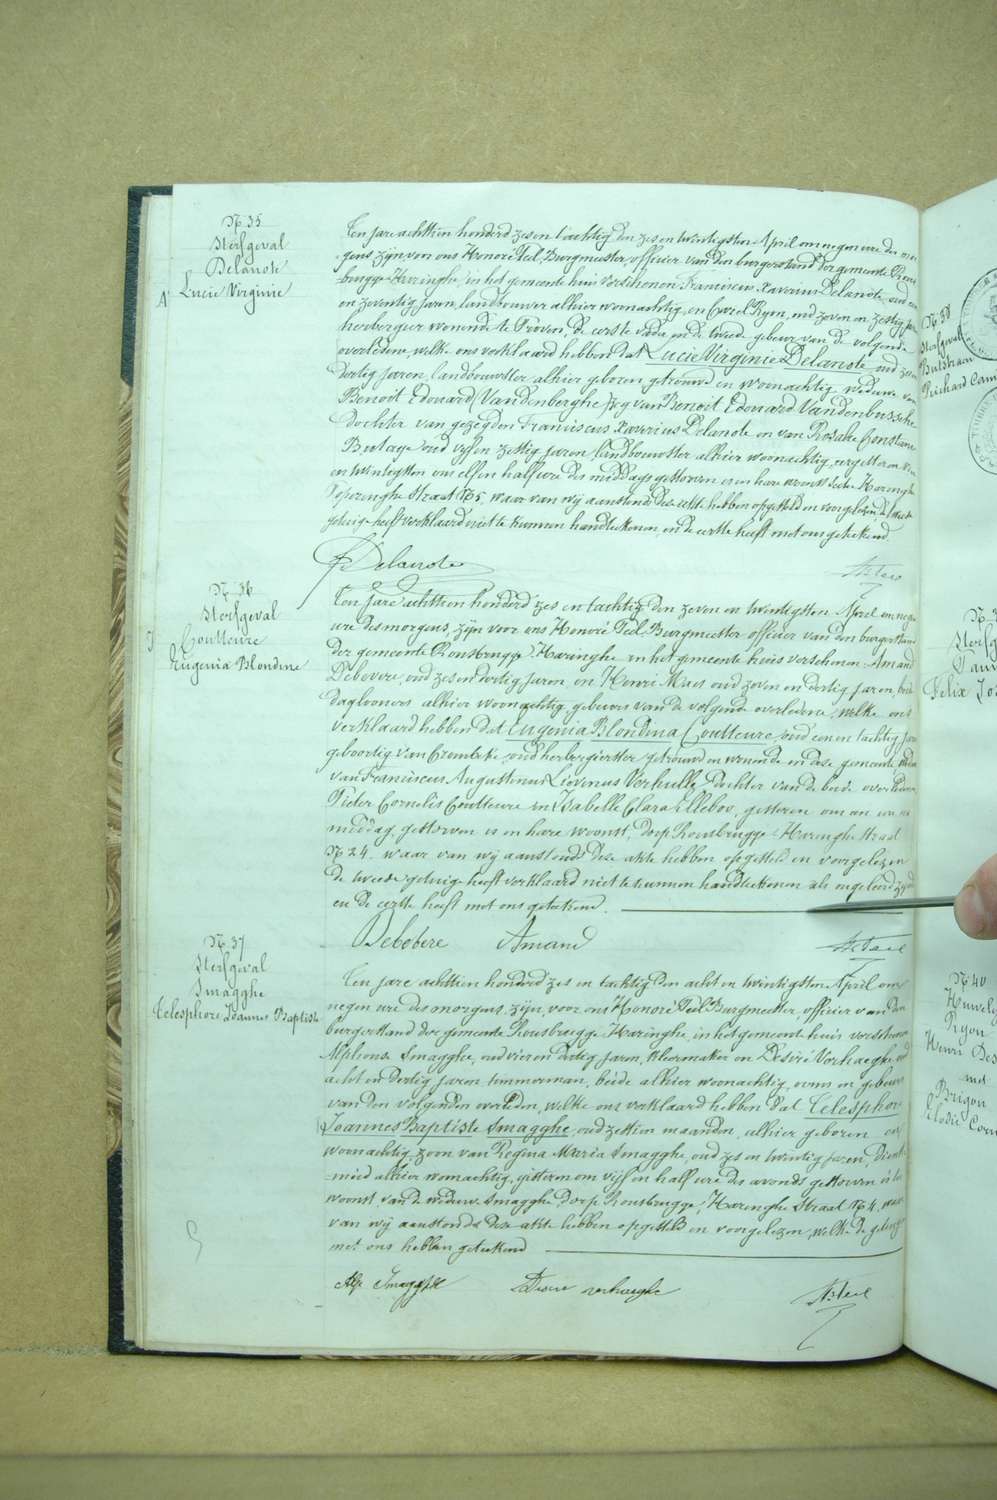 N 35
Sterfgeval
Delanote
Lucie Virginie
Ten jare achttien honderd zes en tachtig den zes en twintigsten April om negen ure des mor
gens zijn voor ons Honoré Teil, Burgmeester, officier van den burgerstand der gemeente Rous
brugge-Haringhe, in het gemeente huis verschenen Franciscus Xaverius Delanote, oud
en zeventig jaren, landbouwer alhier woonachtig, en Karel Ryon, oud zeven en zestig jaren
herbergier wonende te Proven, de eerste vader en de tweede gebuur van de volgende
overledene, welke ons verklaard hebben dat Lucie Virginie Delanote, oud zeven
dertig jaren, landbouwster alhier geboren getrouwd en woonachtig, weduwe van
Benoit Edouard Vandenberghe zeg van Benoit Edouard Vandenbussche
dochter van gezegden Franciscus Xaverius Delanote en van Rosalie Constance
Butaye oud vijf en zestig jaren landbouwster alhier woonachtig, eergisteren
en twintigsten om elf en half ure des middags gestorven is in hare woonst, Haringhe
Poperinghe Straat N 5, waar van wij aanstonds deze akte hebben opgesteld en voorgelezen, de
getuige heeft verklaard niet te kunnen handteekenen, en de eerste heeft met ons geteekend
F Delanote
H Teil
N 36
Sterfgeval
Coutteure
Eugenia Blondine
Ten jare achttien honderd zes en tachtig den zeven en twintigsten April om negen
ure des morgens, zijn voor ons Honoré Teil Burgmeester officier van den burgerstand
der gemeente Rousbrugge-Haringhe in het gemeente huis verschenen Amand
Debovere, oud zes en dertig jaren, en Henri Maes oud zeven en dertig jaren, beide
daglooners alhier woonachtig, geburen van de volgende overledene, welke ons
verklaard hebben dat Eugenia Blondina Coutteure, oud een en tachtig jaren
geboortig van Crombeke, oud herbergierster, getrouwd en wonende in deze gemeente,
van Franciscus Augustinus Livinus Verhulle, dochter van de beide overledenen
Pieter Cornelis Coutteure en Isabelle Clara Ellebov, gisteren om een ure
middag, gestorven is in hare woonst, dorp Rousbrugge-Haringhe straat
N 24, waar van wij aanstonds deze akte hebben opgesteld en voorgelezen
de tweede getuige heeft verklaard niet te kunnen handteekenen als ongeleerd zijnde
en de eerste heeft met ons geteekend.
Debobere Amand
H Teil
N 37
Sterfgeval
Smagghe
Telesphore Joannes Baptiste
Ten jare achttien honderd zes en tachtig den acht en twintigsten April om
negen ure des morgens, zijn voor ons Honoré Teil Burgmeester officier van den
burgerstand der gemeente Rousbrugge-Haringhe, in het gemeente huis verschenen
Alphons Smagghe, oud vier en dertig jaren, kleermaker en Desiré Verhaeghe oud
acht en dertig jaren timmerman, beide alhier woonachtig, oom en gebuur
van den volgenden overleden, welke ons verklaard hebben dat Telesphore
Joannes Baptiste Smagghe, oud zestien maanden, alhier geboren en
woonachtig, zoon van Regina Maria Smagghe, oud zes en twintig jaren, dienst
meid alhier woonachtig, gisteren om vijf en half ure des avonds gestorven is ter
woonst van de weduwe Smagghe, dorp Rousbrugge-Haringhe Straat N 4, waar
van wij aanstonds deze akte hebben opgesteld en voorgelezen, welke de getuigen
met ons hebben geteekend
Alp Smagghe
Desire verhaeghe
H Teil
N 38
Sterfgeval
Sterfg
Felix Jo
N 40
Huwely
Ryon
Henri Des
met
Brigou
Elodie Corn